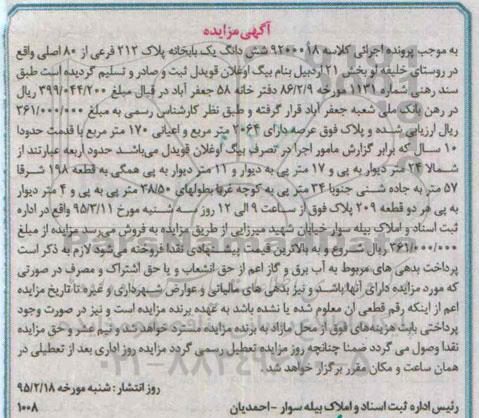 آگهی مزایده
به موجب پرونده اجرائی کلاسه ۹۲۰۰۰۱۸ شش دانگ یک بابخانه پلاک ۲۱۲ فرعی از ۸۰ اصلی واقع
در روستای خلیفه لو بخش ۲۱ اردبیل بنام بیگ اوغلان قویدل ثبت و صادر و تسلیم گردیده است طبق
سند رهنی شماره ۱۱۳۱ مورخه ۸۶/۲/۹ دفتر خانه ۵۸ جعفر آباد در قبال مبلغ ۳۹۹/۰۴۴/۲۰۰ ریال
در رهن بانک ملی شعبه جعفر آباد قرار گرفته و طبق نظر کارشناس رسمی به مبلغ ۳۶۱/۰۰۰/۰۰۰
ریال ارزیابی شده و پلاک فوق عرصه دارای ۲۰۶۴ متر مربع و اعیانی ۱۷۰ متر مربع با قدمت حدودا
۱۰ سال که برابر گزارش مامور اجرا در تصرف بیگ اوغلان قویدل می‌باشد حدود اربعه عبارتند از
شمالا ۲۴ متر دیوار به پی و ۱۷ متر پی به دیوار و ۱۱ متر دیوار به پی همگی به قطعه ۱۹۸ شرقا
۵۷ متر به جاده شنی جنوبا ۳۴ متر پی به کوچه غربا بطولهای ۳۸/۵۰ متر پی به پی و ۴ متر دیوار
به پی هر دو قطعه ۲۰۹ پلاک فوق از ساعت ۹ الی ۱۲ روز سه شنبه مورخ ۹۵/۳/۱۱ واقع در اداره
ثبت اسناد و املاک بیله سوار خیابان شهید میرزایی از طریق مزایده به فروش می‌رسد مزایده از مبلغ
۳۶۱/۰۰۰/۰۰۰ ریال شروع و به بالاترین قیمت پیشنهادی نقدا فروخته می‌شود لازم به ذکر است
پرداخت بدهی های مربوط به آب برق و گاز اعم از حق انشعاب و یا حق اشتراک و مصرف در صورتی
که مورد مزایده دارای آنها باشد و نیز بدهی های مالیاتی و عوارض شهرداری و غیره تا تاریخ مزایده
اعم از اینکه رقم قطعی آن معلوم شده یا نشده باشد به عهده برنده مزایده است و نیز در صورت وجود
پرداختی بابت هزینه‌های فوق از محل مازاد به برنده مزایده مسترد خواهد شد و نیم عشر و حق مزایده
نقدا وصول می گردد ضمنا چنانچه روز مزایده تعطیل رسمی گردد مزایده روز اداری بعد از تعطیلی در
همان ساعت و مکان مقرر برگزار خواهد شد
روز انتشار: شنبه مورخه ۹۵/۲/۱۸
رئیس اداره ثبت اسناد و املاک بیله سوار - احمدیان
۱۰۰۸